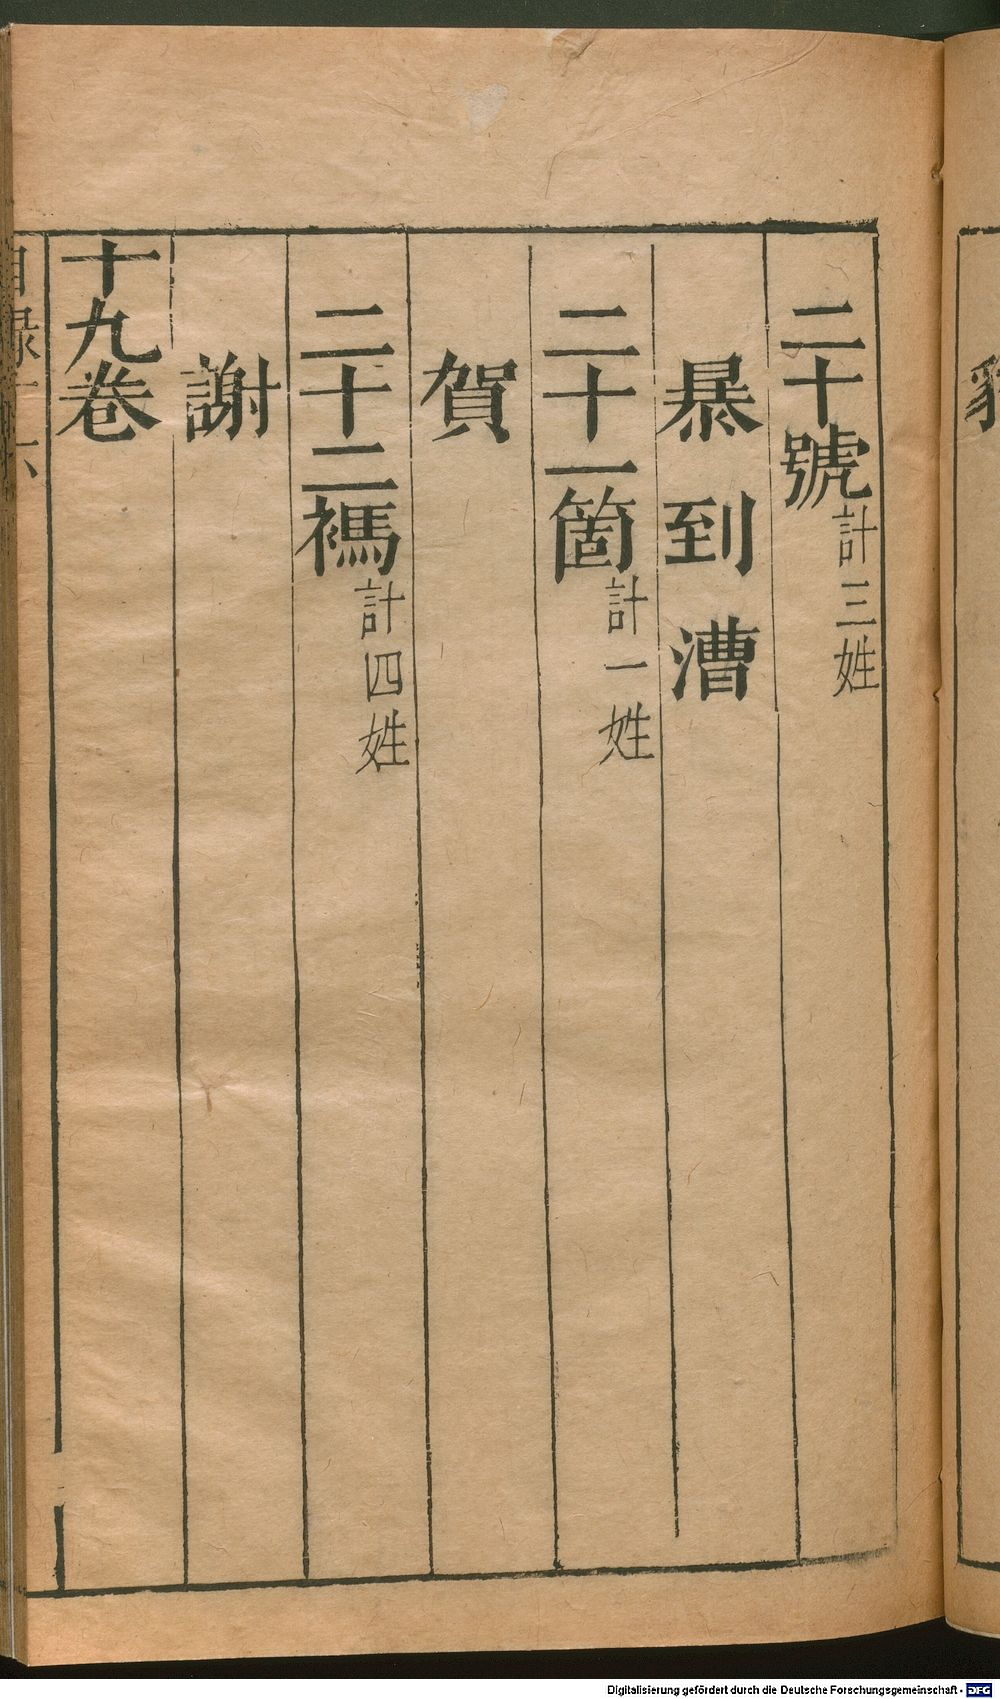 二十號計三姓
暴到漕
二十一箇計一姓
賀
二十二禡計四姓
謝
十九卷
目錄
Digitalisierung gefördert durch die Deutsche Forschungsgemeinschaft - DFG